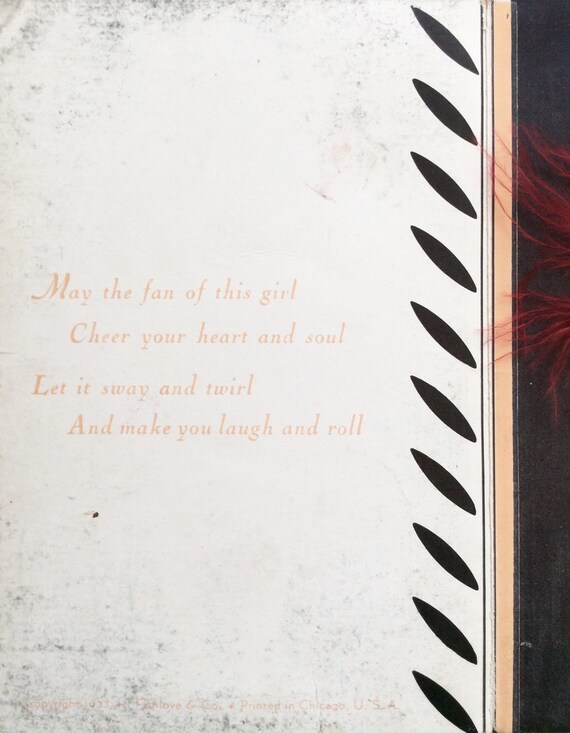 May the fan of this girl
Cheer your heart and soul
Let it sway and twirl
And make you laugh and roll
Copyright & Co. • Printed in Chicago, U. S. A.